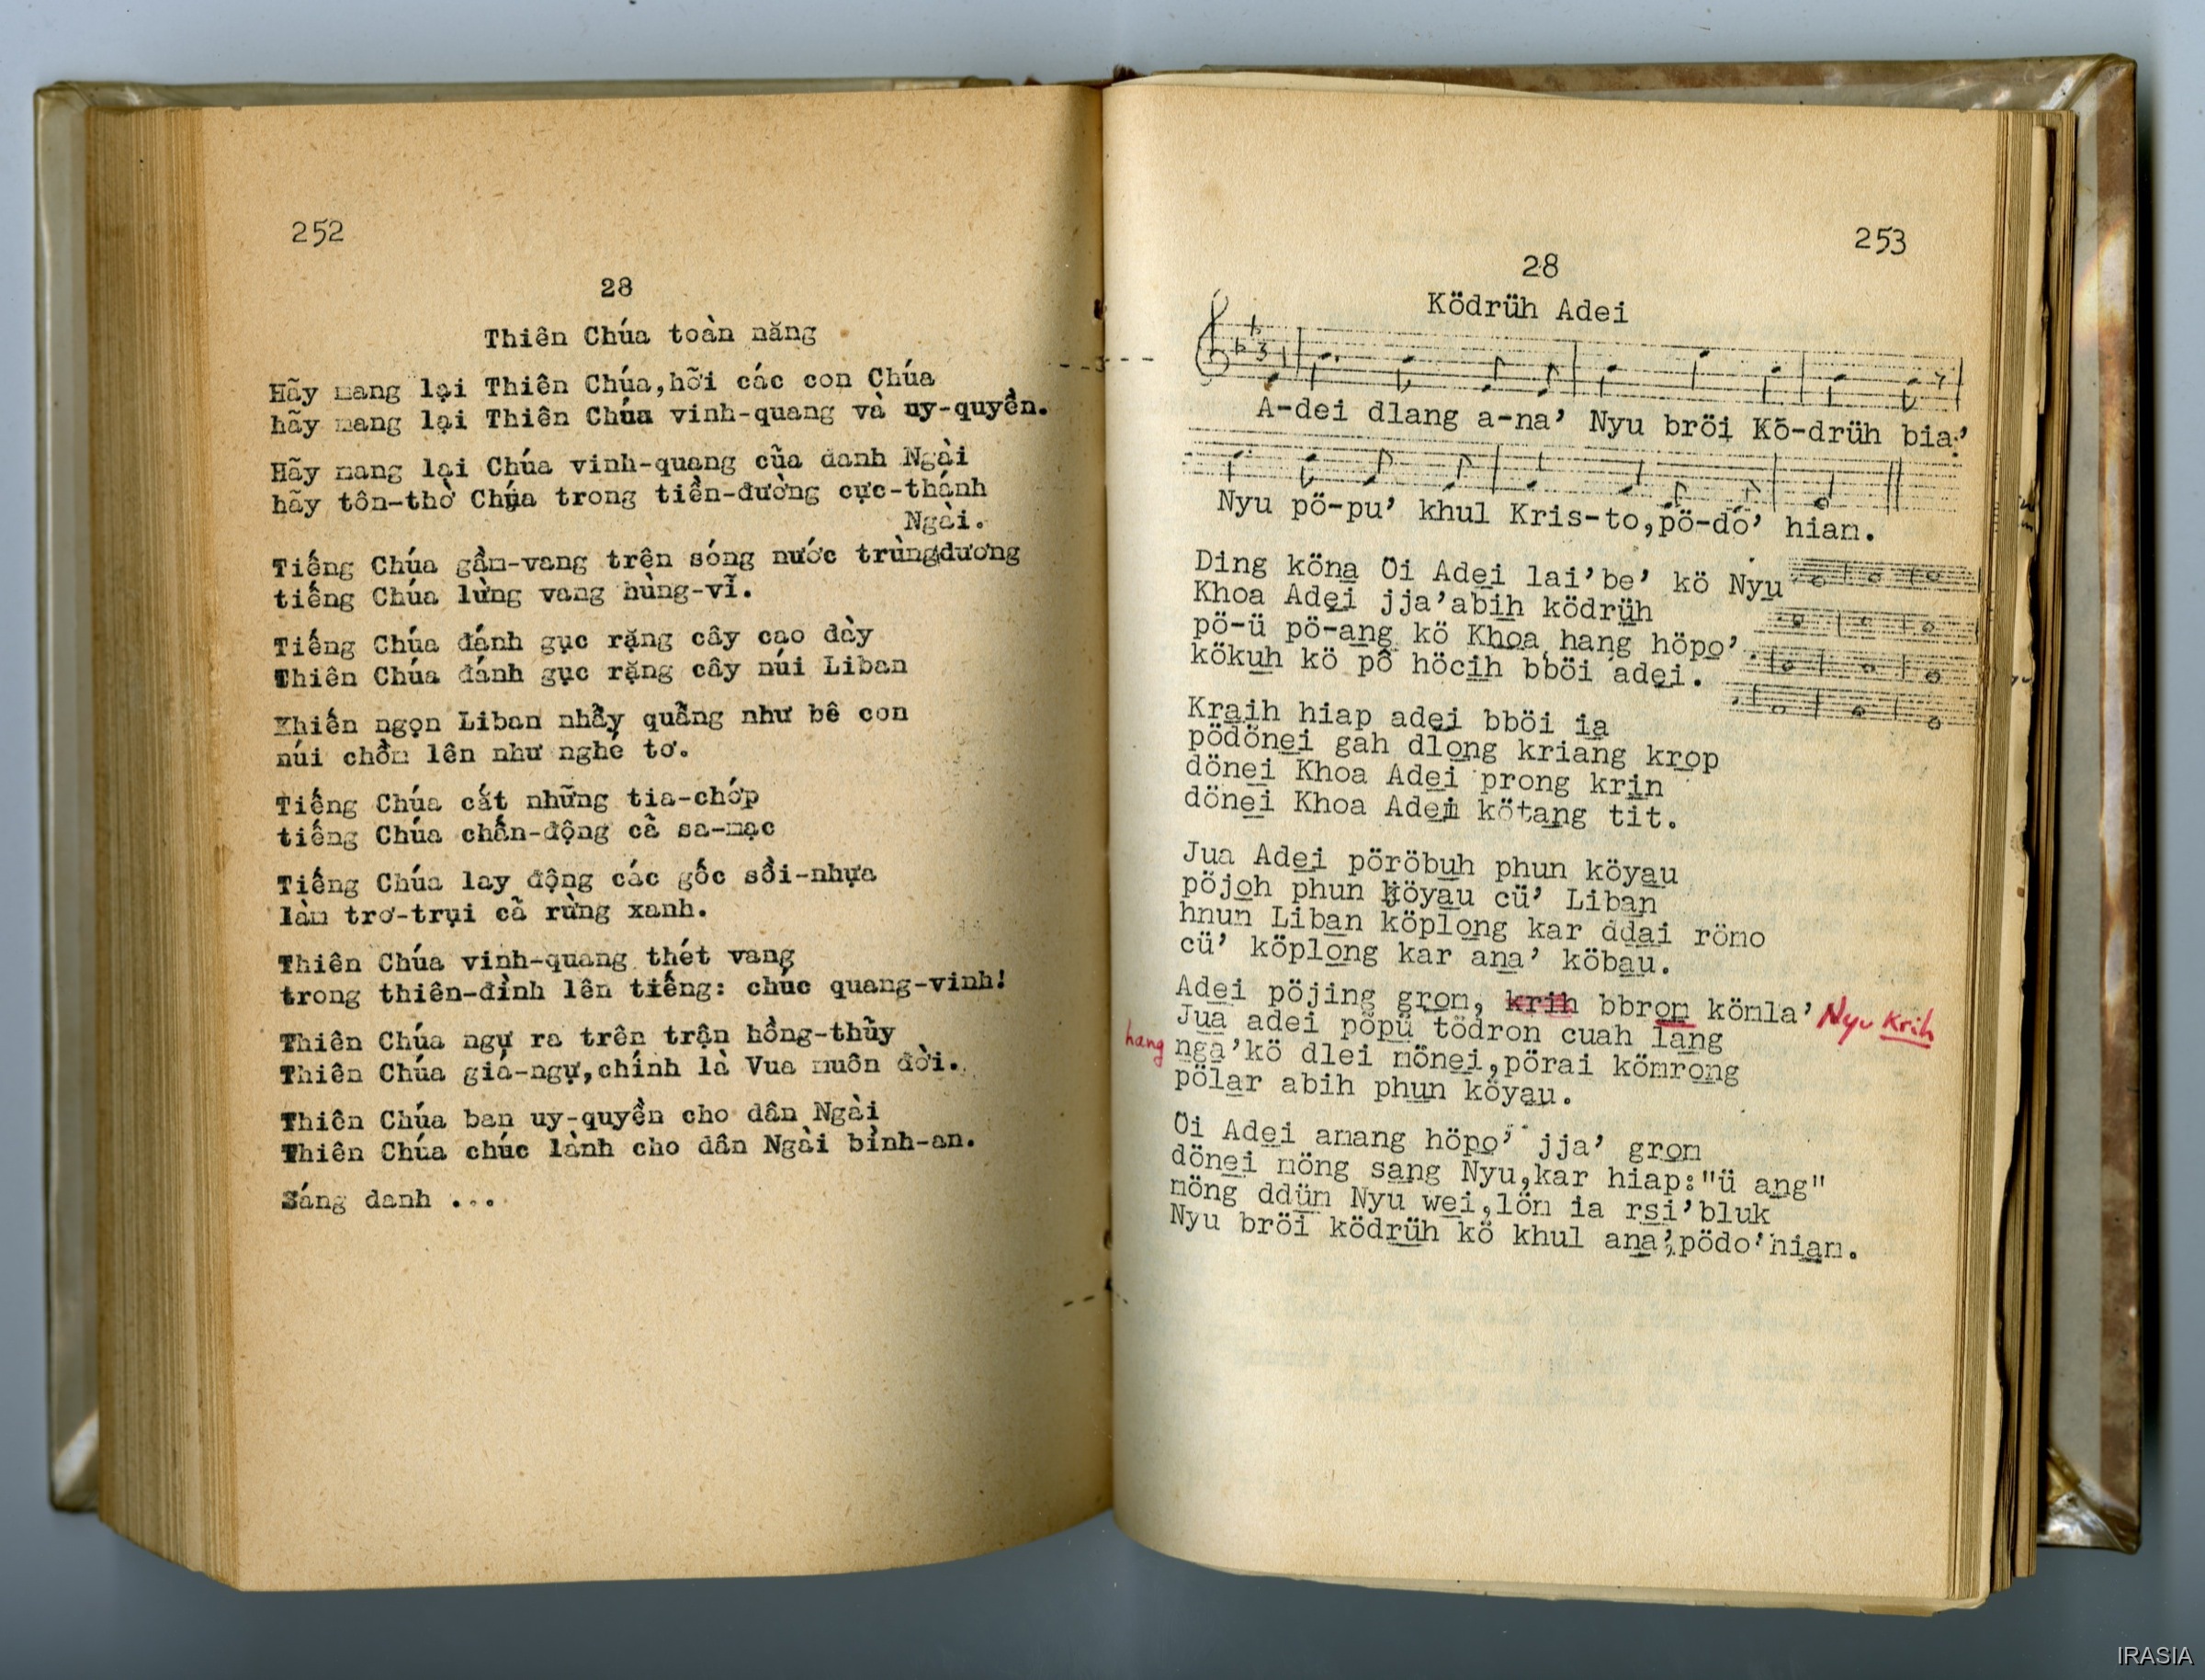 252
28
Thiên Chúa toàn năng
Hãy mang lại Thiên Chúa,hỡi các con Chúa
hãy mang lại Thiên Chúa vinh-quang và uy-quyền.
Hãy mang lại Chúa vinh-quang cũa danh Ngài
hãy tôn-thờ Chúa trong tiền-đường cực-thánh
Ngài.
Tiếng Chúa gầm-vang trên sóng nước trùngdương
tiếng Chúa lừng vang hùng-vĩ.
Tiếng Chúa đánh gục rặng cây cao dày
Thiên Chúa đánh gục rặng cây núi Liban
Khiến ngọn Liban nhẫy quẫng như bê con
núi chồm lên như nghé tơ.
Tiếng Chúa cắt những tia-chớp
tiếng Chúa chấn-động cã sa-mạc
Tiếng Chúa lay động các gốc sồi-nhựa
làm trơ-trụi cã rừng xanh.
Thiên Chúa vinh-quang thét vang
trong thiên-đình lên tiếng: chúc quang-vinh!
Thiên Chúa ngự ra trên trận hồng-thũy
Thiên Chúa giá-ngự,chính là Vua muôn đời.
Thiên Chúa ban uy-quyền cho dân Ngài
Thiên Chúa chúc lành cho dân Ngài bình-an.
Sáng danh ...
253
28
Ködrüh Adei
A-dei dlang a-na’ Nyu bröi Kö-drüh bia’
Nyu pö-pu’ khul Kris-to,pö-dó’ hiam.
Ding köna Oi Adei lai’be’ kö Nyu
Khoa Adei jja’abih ködrüh
pö-ü pö-ang kö Khoa hang höpo’.
kökuh kö pô höcih bböi adei.
Kraih hiap adei bböi ia
pödönei gah dlong kriang krop
dönei Khoa Adei prong krin
dönei Khoa Adei kötang tit.
Jua Adei pöröbuh phun köyau
pöjoh phun köyau cü’ Liban
hnum Liban köplong kar ddai römo
cü’ köplong kar ana’ köbau.
Adei pöjing grom, krih bbrom kömla’ Nyu Krih
Jua adei pöpü tödron cuah lang
hang nga’kö dlei mönei,pörai kömrong
pölar abih phun köyau.
Oi Adei amang höpo’ jja’ grom
dönei möng sang Nyu,kar hiap:"ü ang"
möng ddüm Nyu wei,löm ia rsi’bluk
Nyu bröi ködrüh kö khul ana’,pödo’hiam.
IRASIA